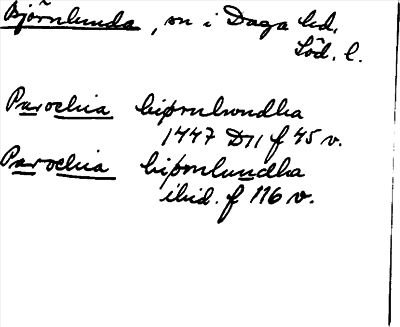 Björnlunda, sn i Daga hd.
Söd. l.
Parochia biørnlwndha
1447 D11 f 45 v.
Parochia biørnlundha
ibid. f 116 v.